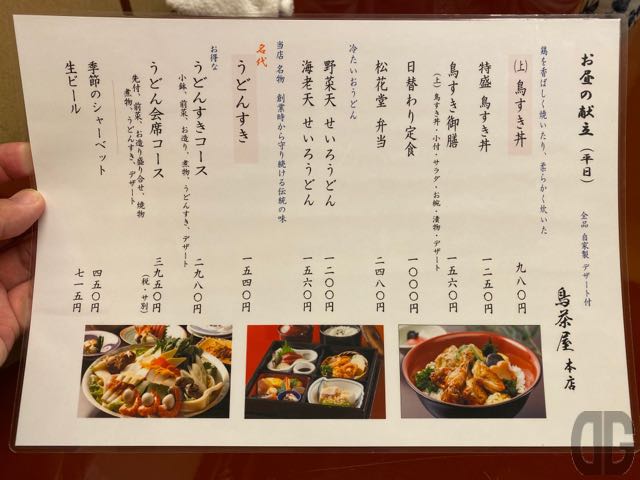 お昼の献立（平日）
全品 自家製 デザート付
鳥茶屋 本店
鶏を香ばしく焼いたり、柔らかく炊いた
（上）鳥すき丼 九八〇円
特盛 鳥すき丼 一二五〇円
鳥すき御膳 一五六〇円
（上）鳥すき丼・小付・サラダ・お椀・漬物・デザート
日替わり定食 一〇〇〇円
松花堂 弁当 二四八〇円
冷たいおうどん
野菜天 せいろうどん 一二〇〇円
海老天 せいろうどん 一五六〇円
当店 名物 創業時から守り続ける伝統の味
名代
うどんすき 一五四〇円
お得な
うどんすきコース 二九八〇円
小鉢、前菜、お造り、煮物、うどんすき、デザート
うどん会席コース 三九五〇円
（税・サ別）
先付、前菜、お造り盛り合せ、焼物
煮物、うどんすき、デザート
季節のシャーベット 四五〇円
生ビール 七一五円
DG